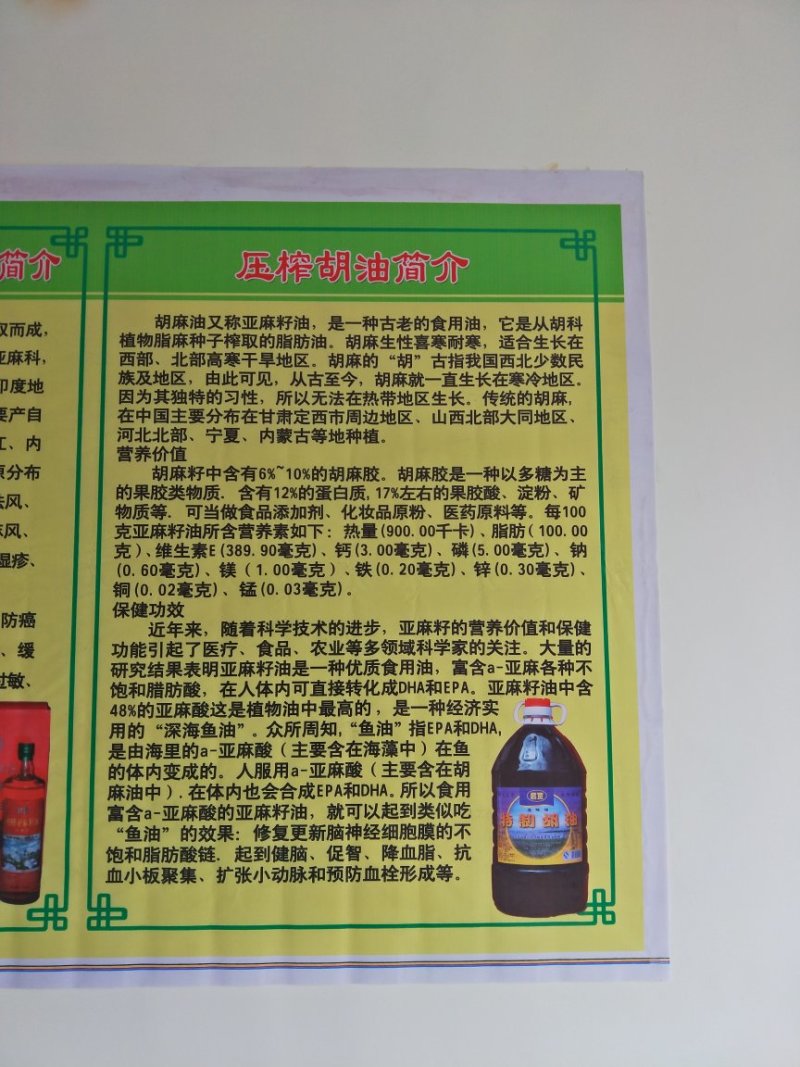 简介
取而成，
亚麻科，
印度地
要产自
江、内
原分布
祛风、
湿疹、
防癌
、缓
过敏、
压榨胡油简介
胡麻油又称亚麻籽油，是一种古老的食用油，它是从胡科
植物脂麻种子榨取的脂肪油。胡麻生性喜寒耐寒，适合生长在
西部、北部高寒干旱地区。胡麻的“胡”古指我国西北少数民
族及地区，由此可见，从古至今，胡麻就一直生长在寒冷地区。
因为其独特的习性，所以无法在热带地区生长。传统的胡麻，
在中国主要分布在甘肃定西市周边地区、山西北部大同地区、
河北北部、宁夏、内蒙古等地种植。
营养价值
胡麻籽中含有6%~10%的胡麻胶。胡麻胶是一种以多糖为主
的果胶类物质．含有12%的蛋白质,17%左右的果胶酸、淀粉、矿
物质等．可当做食品添加剂、化妆品原粉、医药原料等。每100
克亚麻籽油所含营养素如下：热量(900.00千卡)、脂肪(100.00
克)、维生素E(389.90毫克)、钙(3.00毫克)、磷(5.00毫克)、钠
(0.60毫克)、镁（1.00毫克）、铁(0.20毫克)、锌(0.30毫克)、
铜(0.02毫克)、锰(0.03毫克)。
保健功效
近年来，随着科学技术的进步，亚麻籽的营养价值和保健
功能引起了医疗、食品、农业等多领域科学家的关注。大量的
研究结果表明亚麻籽油是一种优质食用油，富含a-亚麻各种不
饱和腊肪酸，在人体内可直接转化成DHA和EPA。亚麻籽油中含
48%的亚麻酸这是植物油中最高的，是一种经济实
用的“深海鱼油”。众所周知,“鱼油”指EPA和DHA,
是由海里的a-亚麻酸（主要含在海藻中）在鱼
的体内变成的。人服用a-亚麻酸（主要含在胡
麻油中）.在体内也会合成EPA和DHA。所以食用
富含a-亚麻酸的亚麻籽油，就可以起到类似吃
“鱼油”的效果：修复更新脑神经细胞膜的不
饱和脂肪酸链．起到健脑、促智、降血脂、抗
血小板聚集、扩张小动脉和预防血栓形成等。
特制胡油